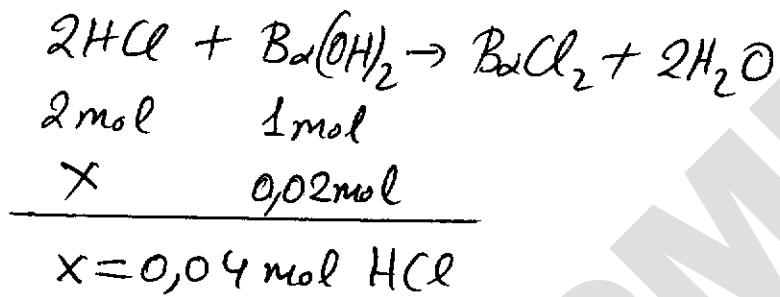 2HCl + Ba(OH)₂ → BaCl₂ + 2H₂O
2mol 1mol
x 0,02mol
x=0,04 mol HCl